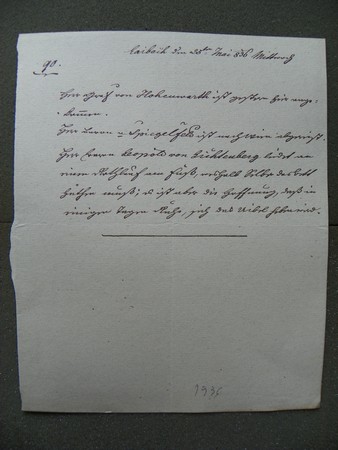 Laibach den 25ten Mai 836 Mittwoch
90.
Herr Graf von Hohenwarth ist gestern hier ange-
kommen.
Herr Baron v Spiegelfeld ist nach Wien abgereist.
Herr Baron Leopold von Lichtenberg leidet an
einem Rothlauf am Fuß, weshalb Selber das Bett
hüthen muß; es ist aber die Hoffnung, daß in
einigen Tagen Ruhe, sich das Uibel heben wird.
1836